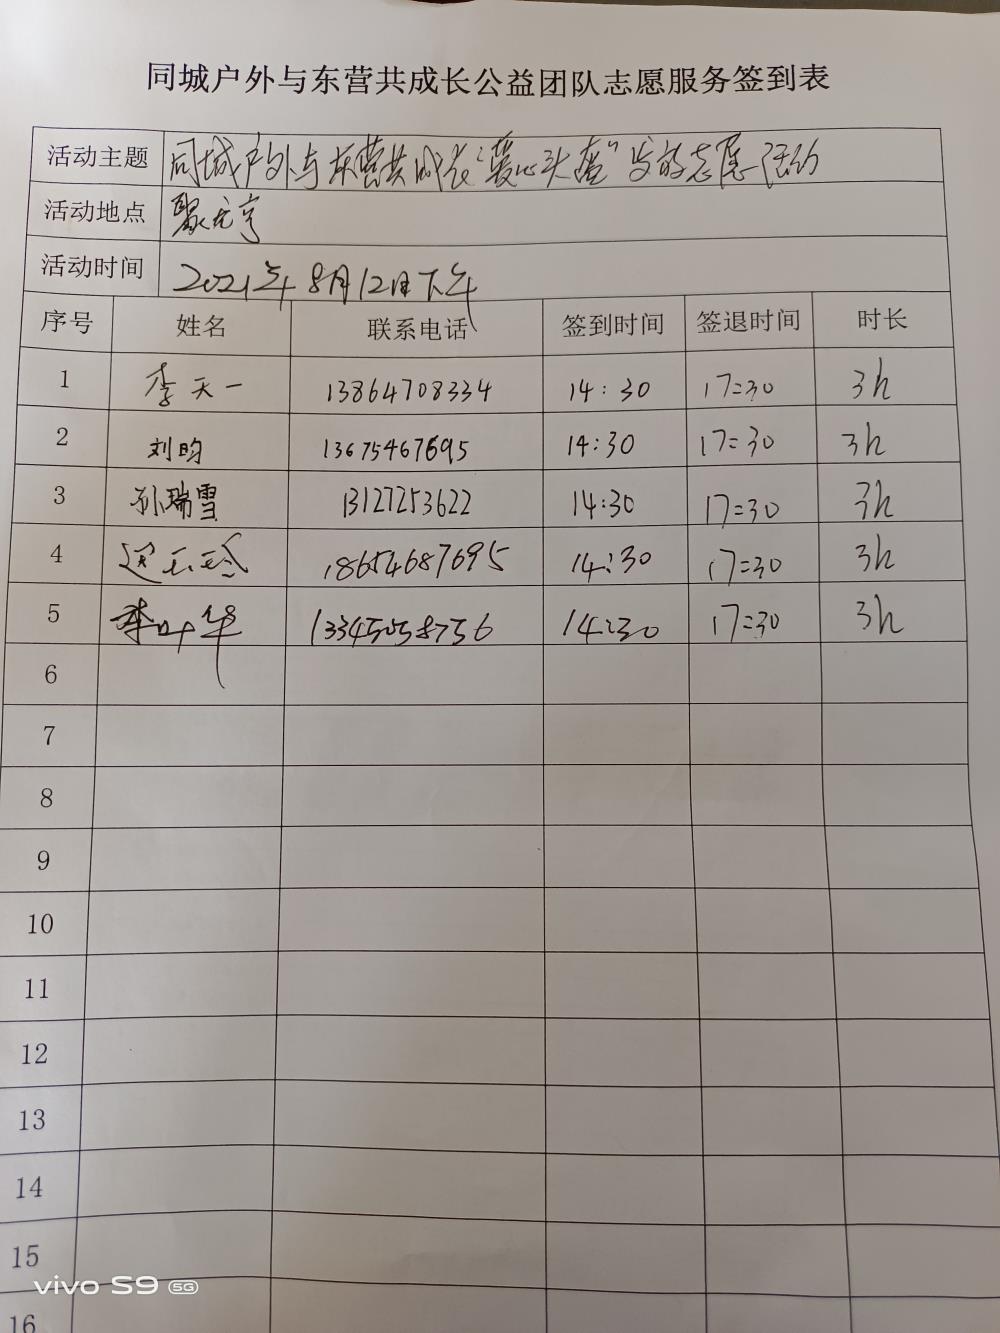 同城户外与东营共成长公益团队志愿服务签到表
活动主题 同城户外与东营共成长“爱心头盔”发放志愿活动
活动地点 聚元亨
活动时间 2021年8月12日下午
序号 姓名 联系电话 签到时间 签退时间 时长
1 李天一 13864708334 14:30 17:30 3h
2 刘昀 13675467695 14:30 17:30 3h
3 孙瑞雪 13127253622 14:30 17:30 3h
4 18654687695 14:30 17:30 3h
5 李叶华 13345058756 14:30 17:30 3h
6
7
8
9
10
11
12
13
14
15
vivo S9 5G
16